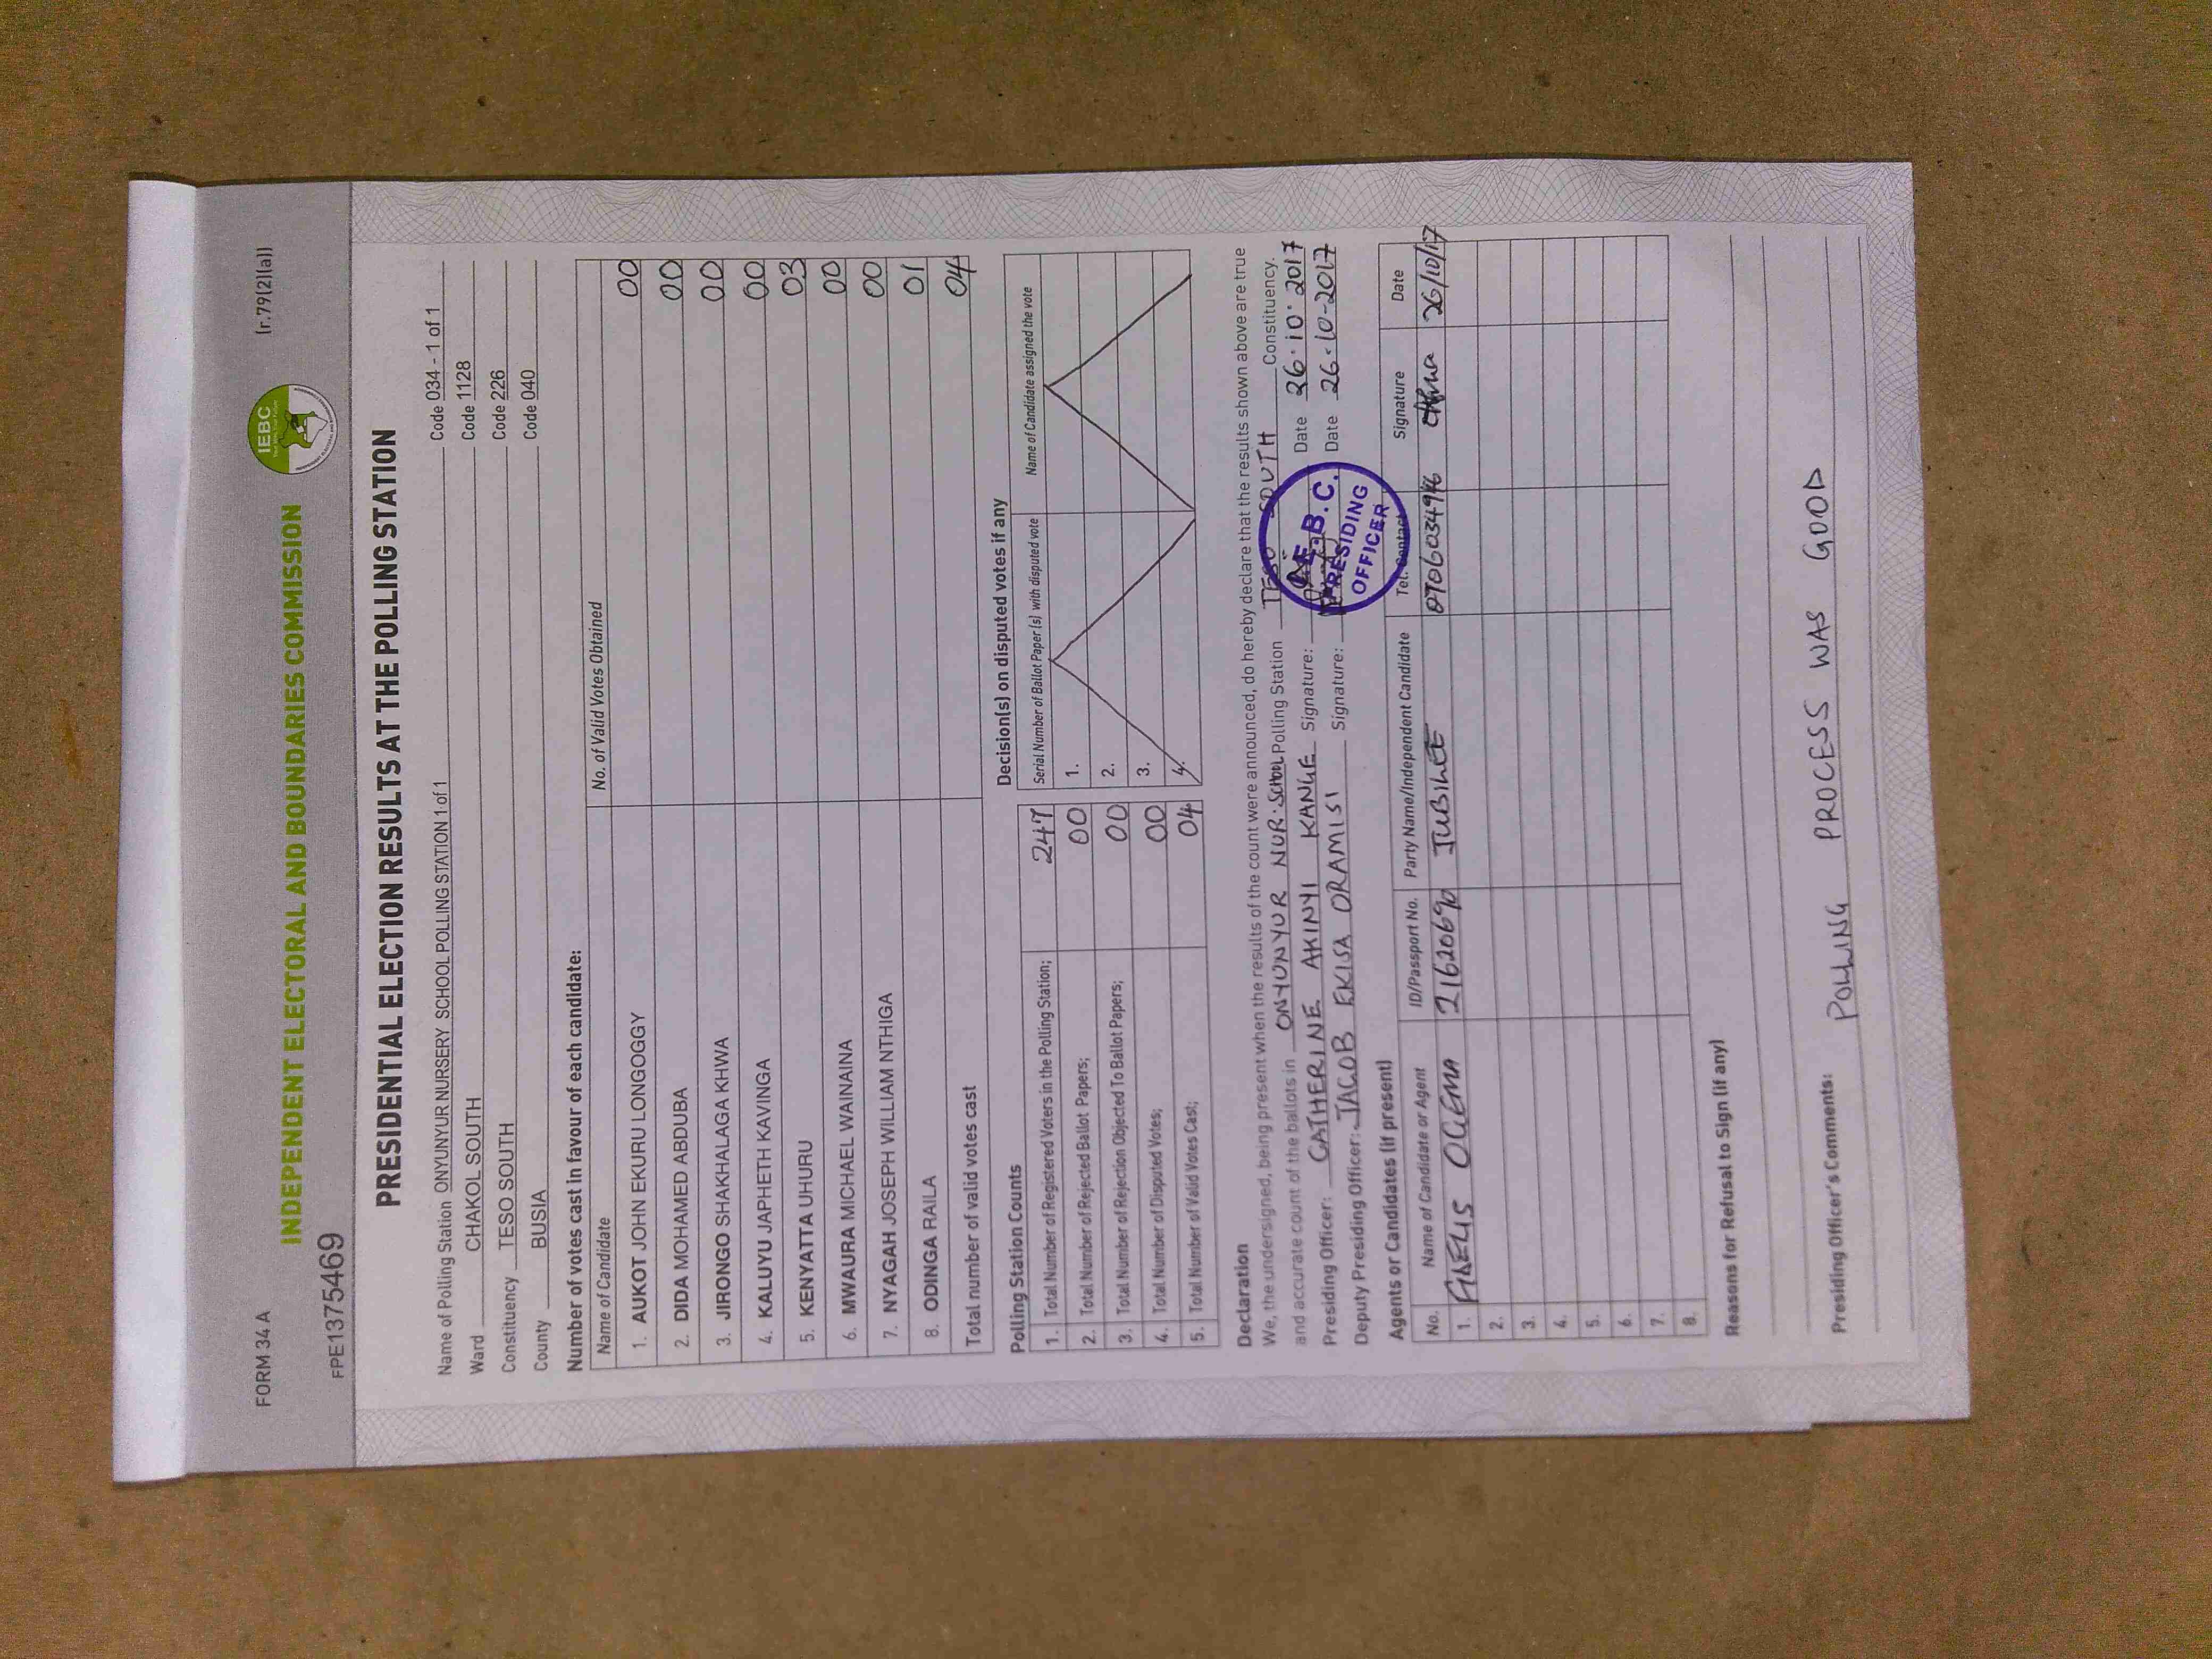 FORM 34 A
(r.79(2)(a))
IEBC
INDEPENDENT ELECTORAL AND BOUNDARIES COMMISSION
FPE1375469
PRESIDENTIAL ELECTION RESULTS AT THE POLLING STATION
Name of Polling Station ONYUNYUR NURSERY SCHOOL POLLING STATION 1 of 1 Code 034 - 1 of 1
Ward CHAKOL SOUTH Code 1128
Constituency TESO SOUTH Code 226
County BUSIA Code 040
Number of votes cast in favour of each candidate:
Name of Candidate No. of Valid Votes Obtained
1. AUKOT JOHN EKURU LONGOGGY 00
2. DIDA MOHAMED ABDUBA 00
3. JIRONGO SHAKHALAGA KHWA 00
4. KALUYU JAPHETH KAVINGA 00
5. KENYATTA UHURU 03
6. MWAURA MICHAEL WAINAINA 00
7. NYAGAH JOSEPH WILLIAM NTHIGA 00
8. ODINGA RAILA 01
Total number of valid votes cast 04
Polling Station Counts
1. Total Number of Registered Voters in the Polling Station; 247
2. Total Number of Rejected Ballot Papers; 00
3. Total Number of Rejection Objected To Ballot Papers; 00
4. Total Number of Disputed Votes; 00
5. Total Number of Valid Votes Cast; 04
Decision(s) on disputed votes if any
Serial Number of Ballot Paper(s) with disputed vote Name of Candidate assigned the vote
1.
2.
3.
4.
Declaration
We, the undersigned, being present when the results of the count were announced, do hereby declare that the results shown above are true
and accurate count of the ballots in ONYUNYUR NUR.SCHOOL Polling Station TESO SOUTH Constituency.
Presiding Officer: CATHERINE AKINYI KANGE Signature: Date 26.10.2017
Deputy Presiding Officer: JACOB EKISA ORAMISI Signature: Date 26-10-2017
I.E.B.C.
PRESIDING
OFFICER
Agents or Candidates (if present)
No. Name of Candidate or Agent ID/Passport No. Party Name/Independent Candidate Tel. Contact Signature Date
1. OGEMA 21620690 JUBILEE 0706034916 26/10/17
2.
3.
4.
5.
6.
7.
8.
Reasons for Refusal to Sign (if any)
Presiding Officer's Comments: POLLING PROCESS WAS GOOD